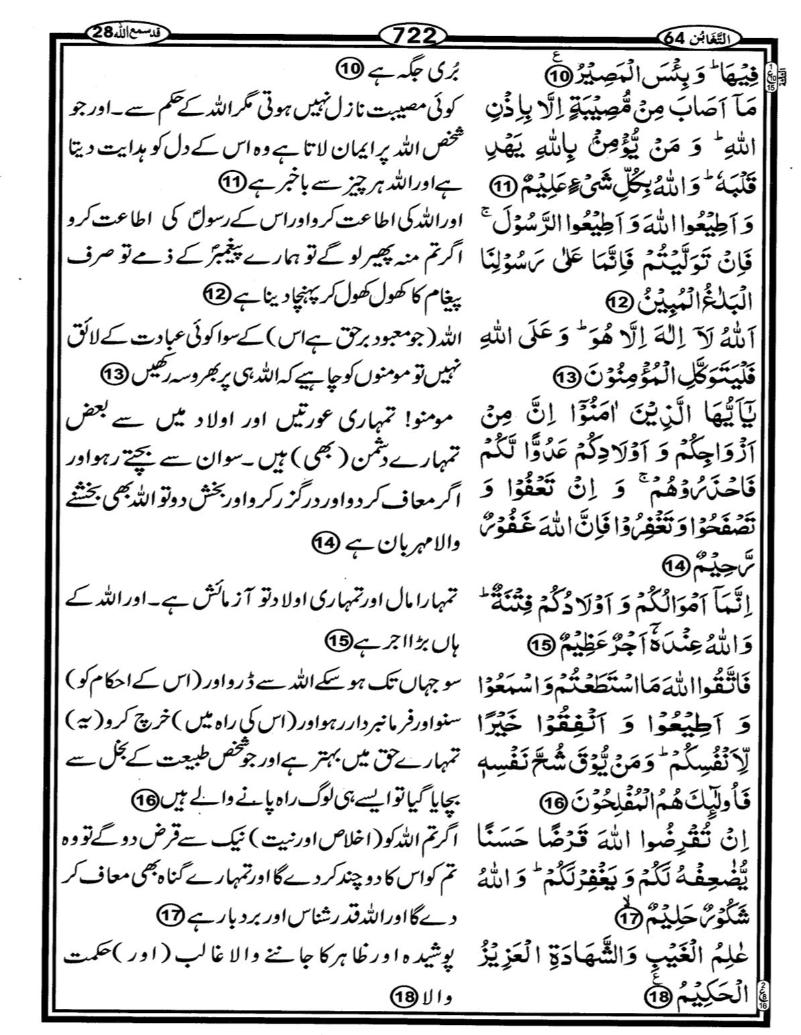 التّغَابُن 64
722
قد سمع اللّٰہ 28
فِيۡهَا‌ؕ وَبِئۡسَ الۡمَصِيۡرُ ⑩
مَاۤ اَصَابَ مِنۡ مُّصِيۡبَةٍ اِلَّا بِاِذۡنِ
اللّٰهِ‌ؕ وَ مَنۡ يُّؤۡمِنۡۢ بِاللّٰهِ يَهۡدِ
قَلۡبَهٗ‌ؕ وَاللّٰهُ بِكُلِّ شَىۡءٍ عَلِيۡمٌ ⑪
وَ اَطِيۡعُوا اللّٰهَ وَ اَطِيۡعُوا الرَّسُوۡلَ‌ۚ
فَاِنۡ تَوَلَّيۡتُمۡ فَاِنَّمَا عَلٰى رَسُوۡلِنَا
الۡبَلٰغُ الۡمُبِيۡنُ ⑫
اَللّٰهُ لَاۤ اِلٰهَ اِلَّا هُوَ‌ؕ وَ عَلَى اللّٰهِ
فَلۡيَتَوَكَّلِ الۡمُؤۡمِنُوۡنَ ⑬
يٰۤاَيُّهَا الَّذِيۡنَ اٰمَنُوۡۤا اِنَّ مِنۡ
اَزۡوَاجِكُمۡ وَ اَوۡلَادِكُمۡ عَدُوًّا لَّكُمۡ
فَاحۡذَرُوۡهُمۡ‌ۚ وَ اِنۡ تَعۡفُوۡا وَ
تَصۡفَحُوۡا وَتَغۡفِرُوۡا فَاِنَّ اللّٰهَ غَفُوۡرٌ
رَّحِيۡمٌ ⑭
اِنَّمَاۤ اَمۡوَالُكُمۡ وَ اَوۡلَادُكُمۡ فِتۡنَةٌ‌ؕ
وَاللّٰهُ عِنۡدَهٗۤ اَجۡرٌ عَظِيۡمٌ ⑮
فَاتَّقُوا اللّٰهَ مَا اسۡتَطَعۡتُمۡ وَاسۡمَعُوۡا
وَ اَطِيۡعُوۡا وَ اَنۡفِقُوۡا خَيۡرًا
لِّاَنۡفُسِكُمۡ‌ؕ وَمَنۡ يُّوۡقَ شُحَّ نَفۡسِهٖ
فَاُولٰٓٮِٕكَ هُمُ الۡمُفۡلِحُوۡنَ ⑯
اِنۡ تُقۡرِضُوا اللّٰهَ قَرۡضًا حَسَنًا
يُّضٰعِفۡهُ لَكُمۡ وَ يَغۡفِرۡ لَكُمۡ‌ؕ وَ اللّٰهُ
شَكُوۡرٌ حَلِيۡمٌ ۙ⑰
عٰلِمُ الۡغَيۡبِ وَالشَّهَادَةِ الۡعَزِيۡزُ
الۡحَكِيۡمُ ⑱
بُری جگہ ہے ⑩
کوئی مصیبت نازل نہیں ہوتی مگر اللہ کے حکم سے۔ اور جو
شخص اللہ پر ایمان لاتا ہے وہ اس کے دل کو ہدایت دیتا
ہے اور اللہ ہر چیز سے باخبر ہے ⑪
اور اللہ کی اطاعت کرو اور اس کے رسولؐ کی اطاعت کرو
اگر تم منہ پھیر لو گے تو ہمارے پیغمبرؐ کے ذمے تو صرف
پیغام کا کھول کھول کر پہنچا دینا ہے ⑫
اللہ (جو معبود برحق ہے اس) کے سوا کوئی عبادت کے لائق
نہیں تو مومنوں کو چاہیے کہ اللہ ہی پر بھروسہ رکھیں ⑬
مومنو! تمہاری عورتیں اور اولاد میں سے بعض
تمہارے دشمن (بھی) ہیں۔ سو ان سے بچتے رہو اور
اگر معاف کر دو اور درگزر کرو اور بخش دو تو اللہ بھی بخشنے
والا مہربان ہے ⑭
تمہارا مال اور تمہاری اولاد تو آزمائش ہے۔ اور اللہ کے
ہاں بڑا اجر ہے ⑮
سو جہاں تک ہو سکے اللہ سے ڈرو اور (اس کے احکام کو)
سنو اور فرمانبردار رہو اور (اس کی راہ میں) خرچ کرو (یہ)
تمہارے حق میں بہتر ہے اور جو شخص طبیعت کے بخل سے
بچایا گیا تو ایسے ہی لوگ راہ پانے والے ہیں ⑯
اگر تم اللہ کو (اخلاص اور نیت) نیک سے قرض دو گے تو وہ
تم کو اس کا دو چند کر دے گا اور تمہارے گناہ بھی معاف کر
دے گا اور اللہ قدر شناس اور بردبار ہے ⑰
پوشیدہ اور ظاہر کا جاننے والا غالب (اور) حکمت
والا ⑱